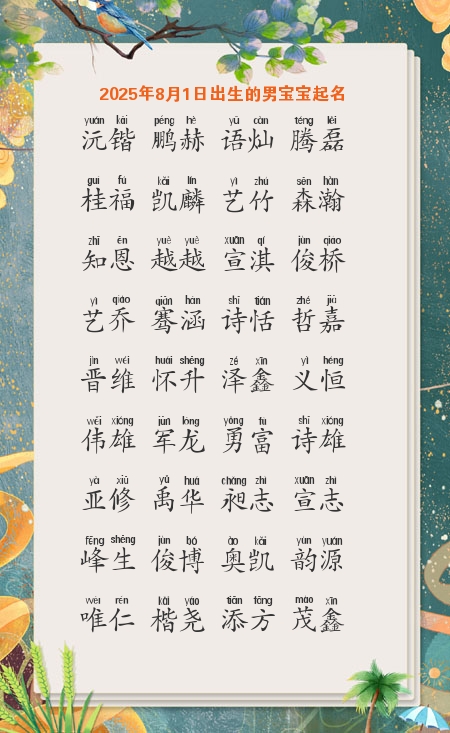 2025年8月1日出生的男宝宝起名
yuán kǎi péng hè yǔ càn téng lěi
沅锴 鹏赫 语灿 腾磊
guì fú kǎi lín yì zhú sēn hàn
桂福 凯麟 艺竹 森瀚
zhī ēn yuè yuè xuān qí jùn qiáo
知恩 越越 宣淇 俊桥
yì qiáo qiān hán shī tián zhé jiā
艺乔 骞涵 诗恬 哲嘉
jìn wéi huái shēng zé xīn yì héng
晋维 怀升 泽鑫 义恒
wěi xióng jūn lóng yǒng fù shī xióng
伟雄 军龙 勇富 诗雄
yà xiū yǔ huá chǎng zhì xuān zhì
亚修 禹华 昶志 宣志
fēng shēng jùn bó ào kǎi yùn yuán
峰生 俊博 奥凯 韵源
wéi rén kǎi yáo tiān fāng mào xīn
唯仁 楷尧 添方 茂鑫